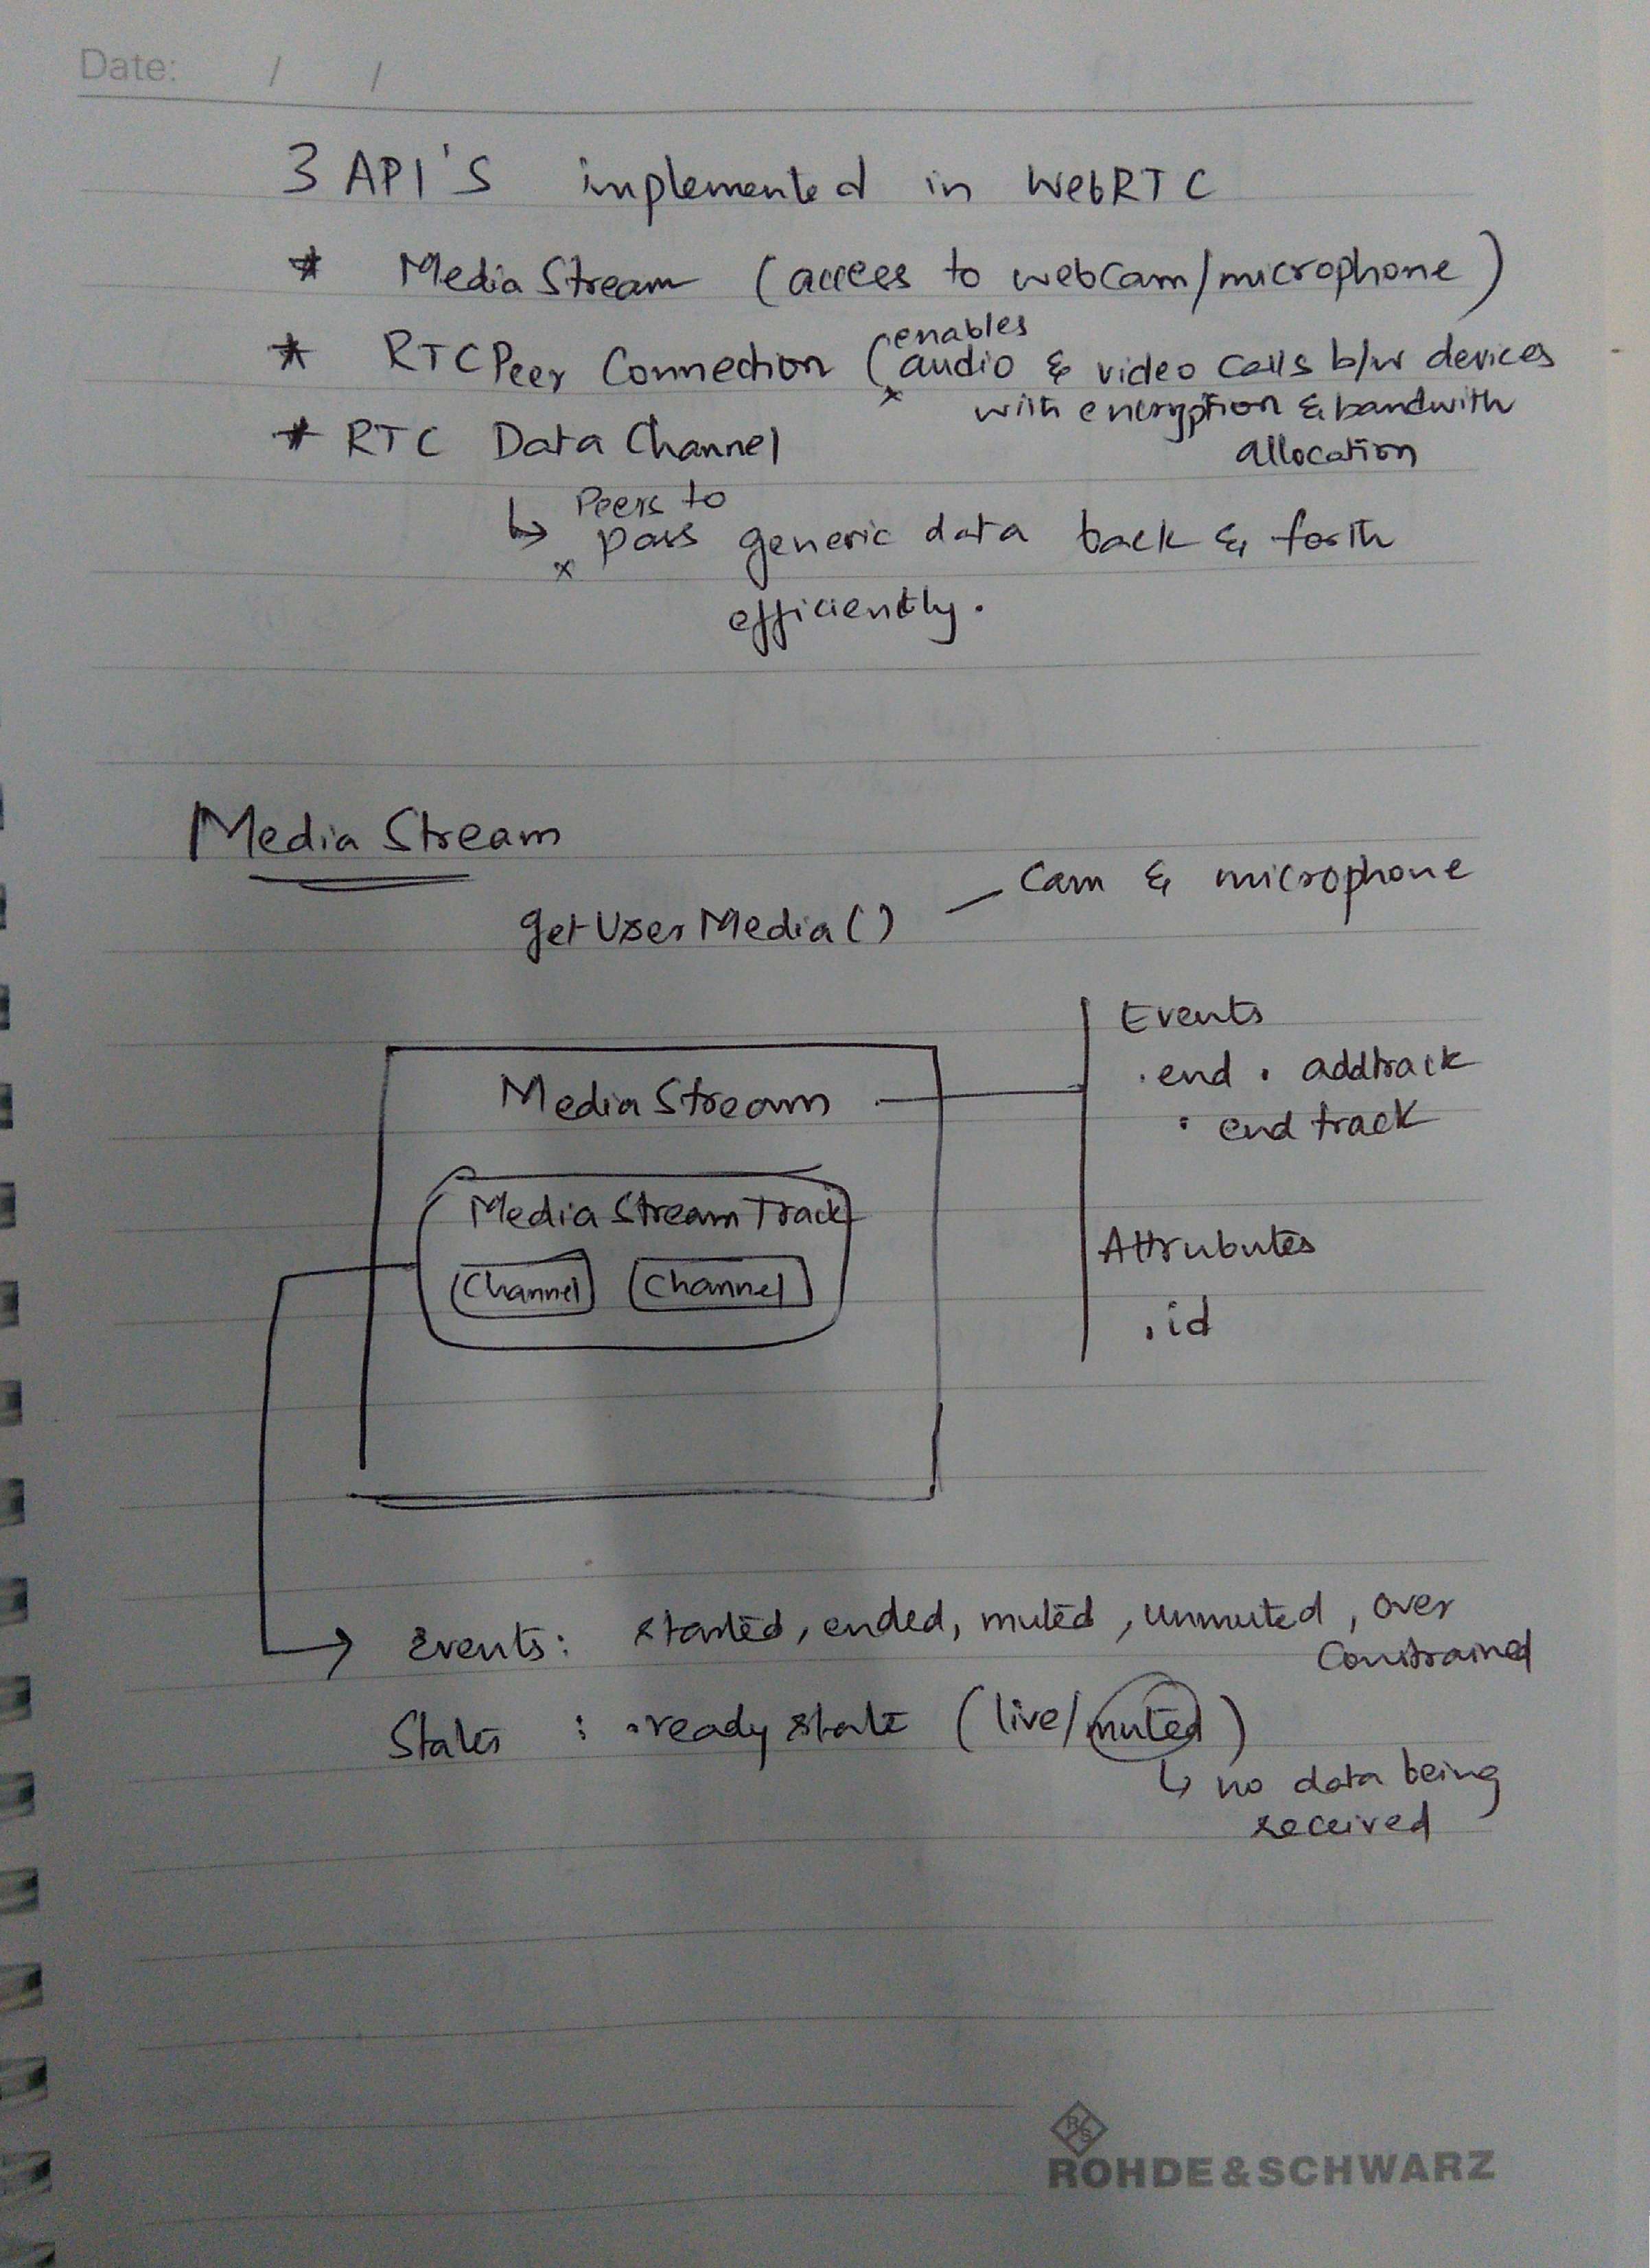 Date: / /
3 API'S implemented in WebRTC
* Media Stream (access to webcam/microphone)
enables
* RTCPeer Connection (audio & video calls b/w devices
with encryption & bandwith
allocation
* RTC Data Channel
Peers to
↳ x pass generic data back & forth
efficiently.
Media Stream
getUserMedia() — Cam & microphone
Events
.end . addtrack
. end track
Media Stream
Media Stream Track
Channel Channel
Attrubutes
.id
Events: started, ended, muted, unmuted, over
constrained
States : .ready state (live/muted)
↳ no data being
received
R S
ROHDE & SCHWARZ